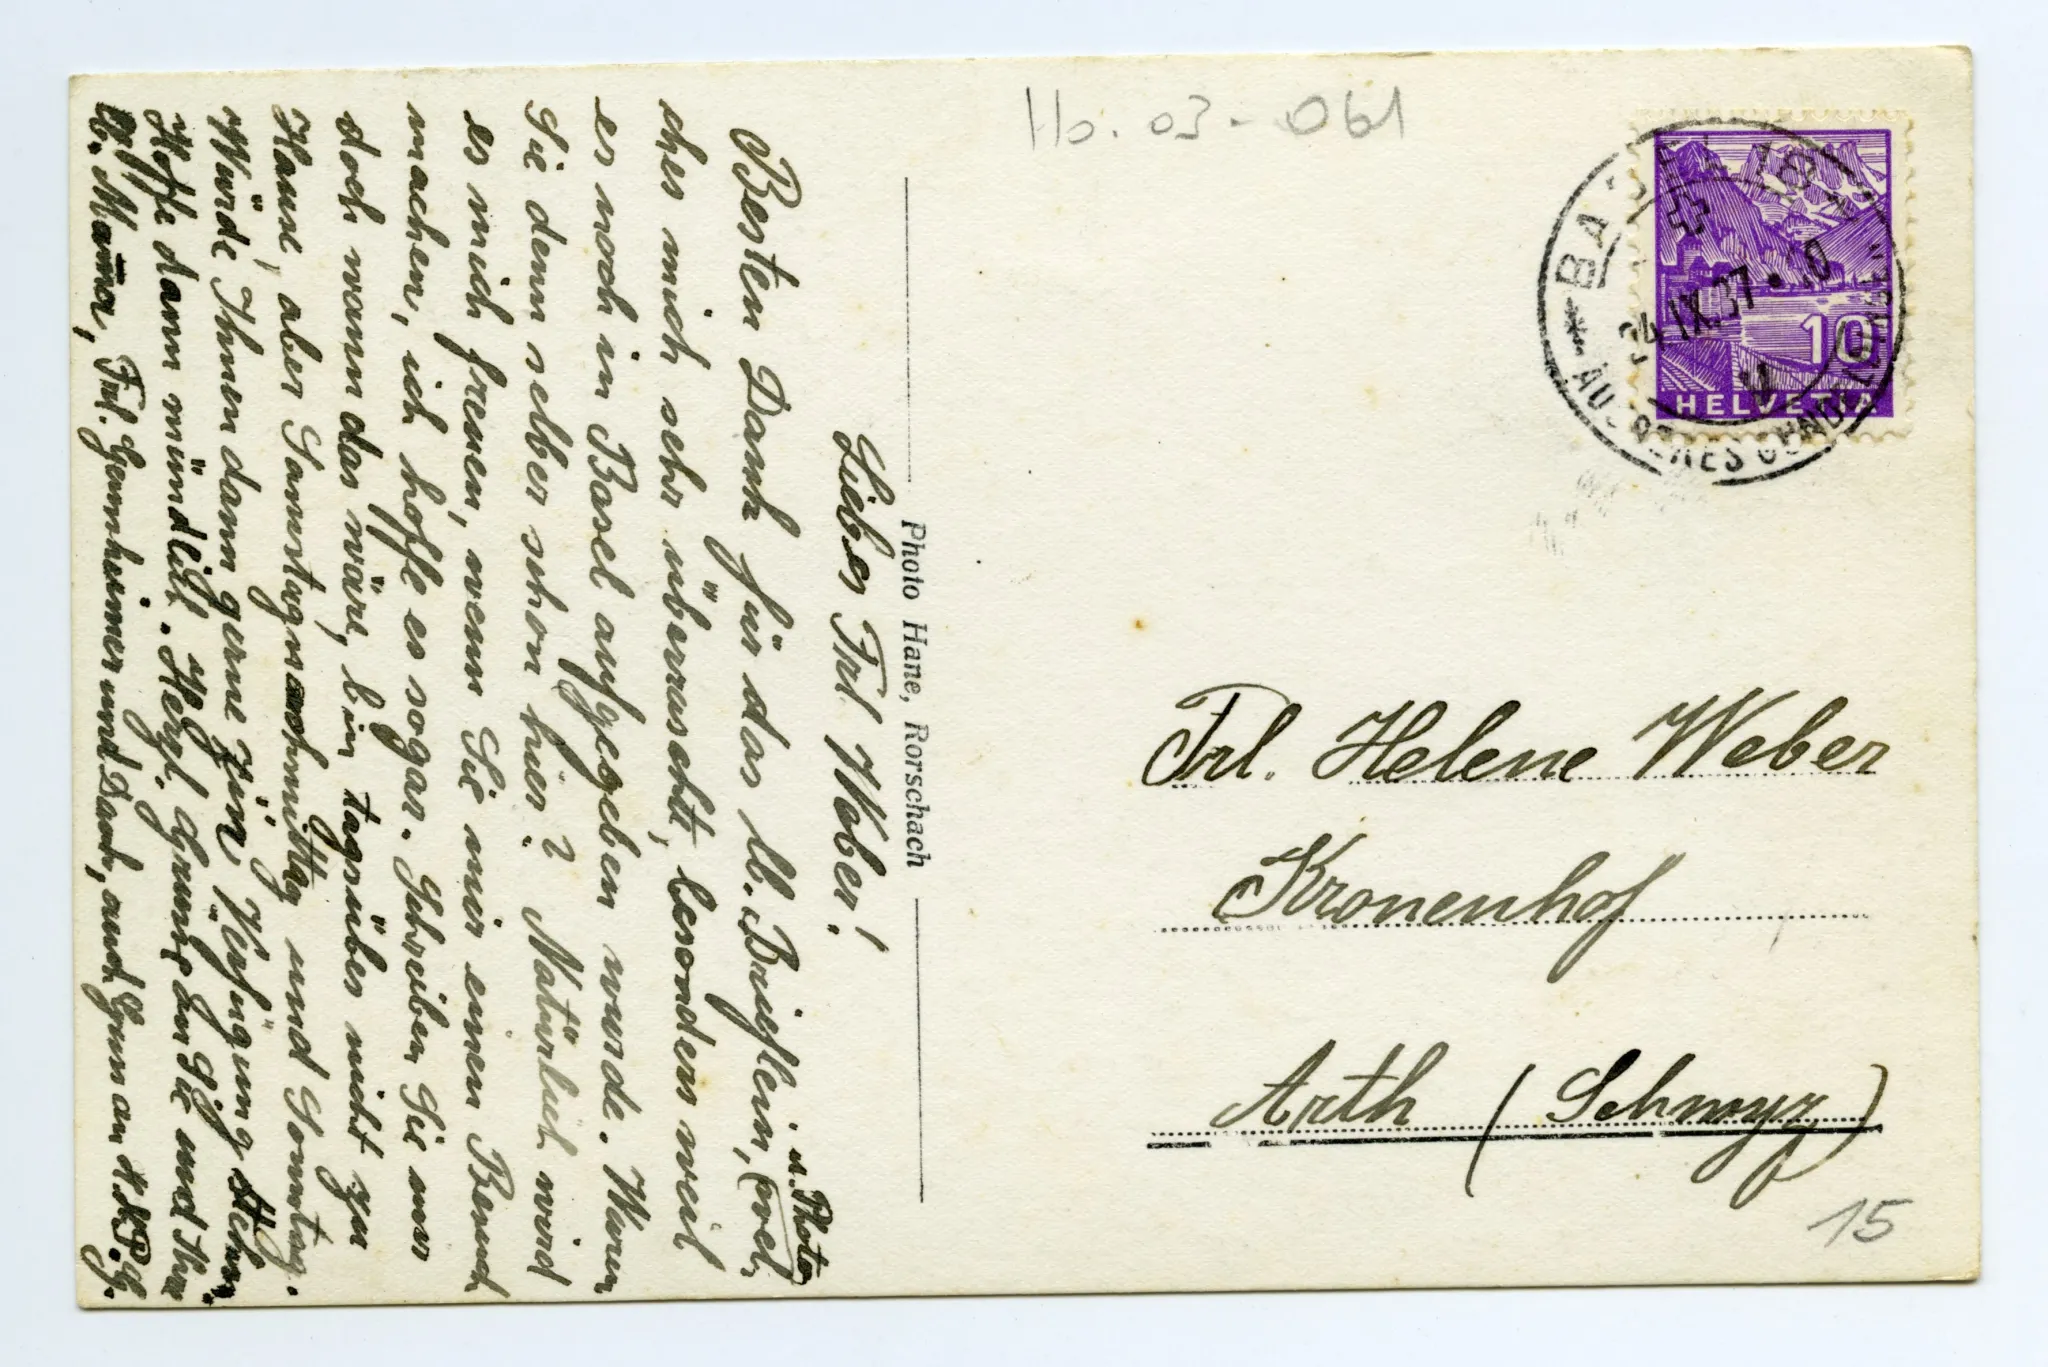 Liebes Frl. Weber!
Besten Dank für das lb. Brieflein, wel-
u. Photo
ches mich sehr überrascht, besonders weil
es noch in Basel aufgegeben wurde. Waren
Sie denn selber schon hier? Natürlich wird
es mich freuen, wenn Sie mir einen Besuch
machen, ich hoffe es sogar. Schreiben Sie nur
doch wann das wäre, bin tagsüber nicht zu
Hause, aber Samstagnachmittag und Sonntag.
Würde Ihnen dann gerne zur Verfügung stehen.
Hoffe dann mündlich. Herzl. Grüsse an Sie und Ihre
lb. Mama, Frl. und Dank, auch Gruss an
Photo Hane, Rorschach
Hb. 03 - 061
BASEL 18
24. IX. 37
ÄUSSERES GUNDELDINGEN
10
HELVETIA
Frl. Helene Weber
Kronenhof
Arth (Schwyz)
15